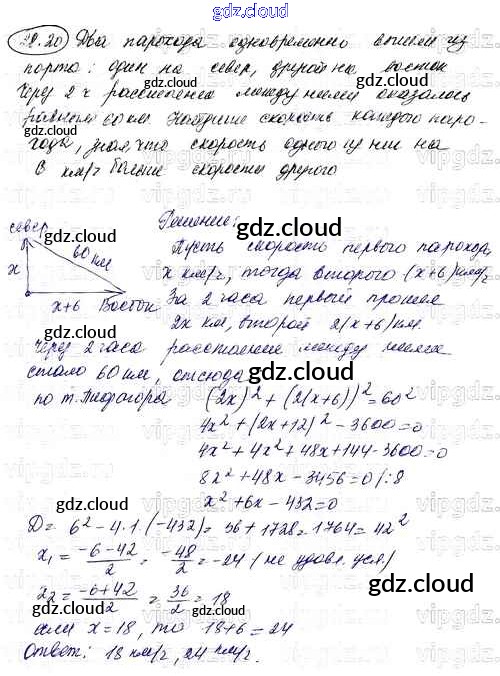 gdz.cloud
28.20 Два парохода одновременно вышли из
gdz.cloud
порта: один на север, другой на восток
Через 2 ч расстояние между ними оказалось
равным 60 км. Найдите скорость каждого паро-
хода, зная, что скорость одного из них на
6 км/ч больше скорости другого
gdz.cloud
север
gdz.cloud
60 км
x
x+6 Восток
Решение:
gdz.cloud
Пусть скорость первого парохода
x км/ч, тогда второго (x+6) км/ч
За 2 часа первый прошел
2x км, второй 2(x+6) км.
Через 2 часа расстояние между ними
стало 60 км, отсюда gdz.cloud
по т. Пифагора (2x)² + (2(x+6))² = 60²
4x² + (2x+12)² - 3600 = 0
4x² + 4x² + 48x + 144 - 3600 = 0
8x² + 48x - 3456 = 0 /:8
gdz.cloud
x² + 6x - 432 = 0
D = 6² - 4·1·(-432) = 36 + 1728 = 1764 = 42²
x₁ = (-6-42)/2 = -48/2 = -24 (не удовл. усл.)
gdz.cloud
gdz.cloud
x₂ = (-6+42)/2 = 36/2 = 18
если x = 18, то 18+6 = 24
Ответ: 18 км/ч, 24 км/ч.
gdz.cloud